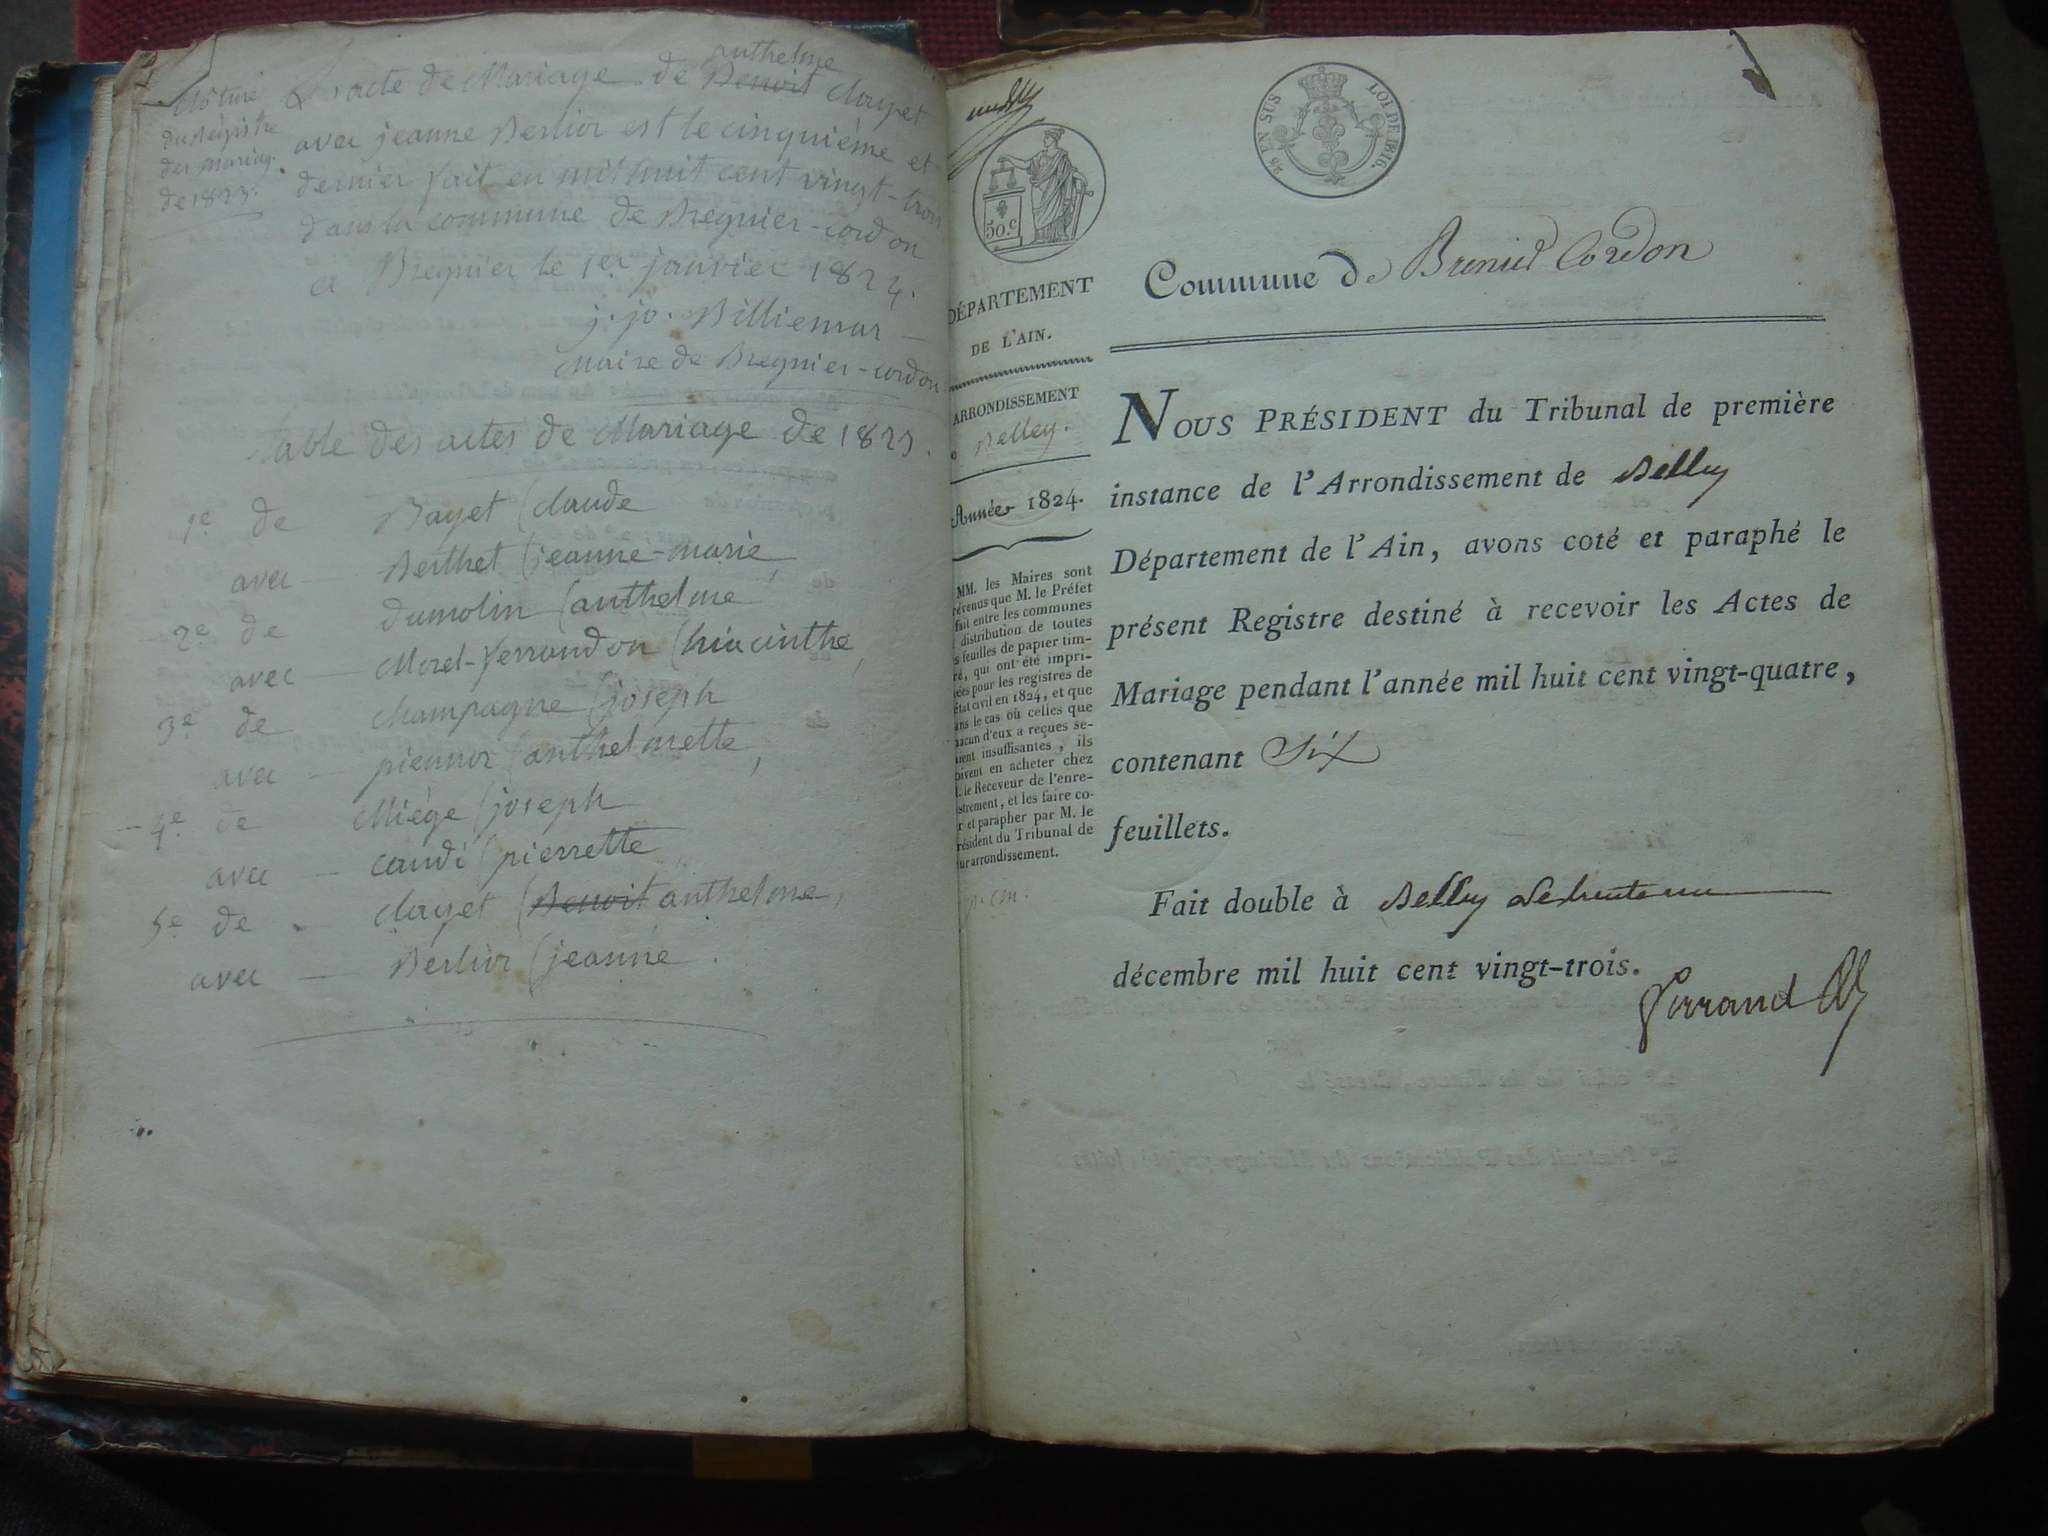 Clôture
du Registre
des mariag.
de 1823.
anthelme
L'acte de Mariage de Benoit clayet
avec jeanne Berlior est le cinquiéme et
dernier fait en mil huit cent vingt-trois
dans la commune de Bregnier-cordon
a Bregnier le 1er janvier 1824.
j. jo. Billiemar
Maire de Bregnier-cordon
Table des actes de Mariage de 1823.
1e de Bayet (claude
avec Berthet (jeanne-marie,
2e de dumolin (anthelme
avec Morel-ferrandon (hiacinthe,
3e de Champagne (joseph
avec piennoz (anthelmette,
4e de Miége (joseph
avec caudi (pierrette
5e de clayet (Benoit anthelme,
avec Berlior (jeanne.
50.c
25 EN SUS
LOI DE 1816.
DÉPARTEMENT
DE L'AIN.
ARRONDISSEMENT
Belley.
Année 1824.
MM. les Maires sont
révenus que M. le Préfet
fait entre les communes
distribution de toutes
s feuilles de papier tim-
ré, qui ont été impri-
ées pour les registres de
état civil en 1824, et que
ans le cas où celles que
hacun d'eux a reçues se-
ient insuffisantes, ils
oivent en acheter chez
. le Receveur de l'enre-
istrement, et les faire co-
r et parapher par M. le
résident du Tribunal de
ur arrondissement.
Commune de Brenier Cordon
NOUS PRÉSIDENT du Tribunal de première
instance de l'Arrondissement de Belley
Département de l'Ain, avons coté et paraphé le
présent Registre destiné à recevoir les Actes de
Mariage pendant l'année mil huit cent vingt-quatre,
contenant Six
feuillets.
Fait double à Belley le
décembre mil huit cent vingt-trois.